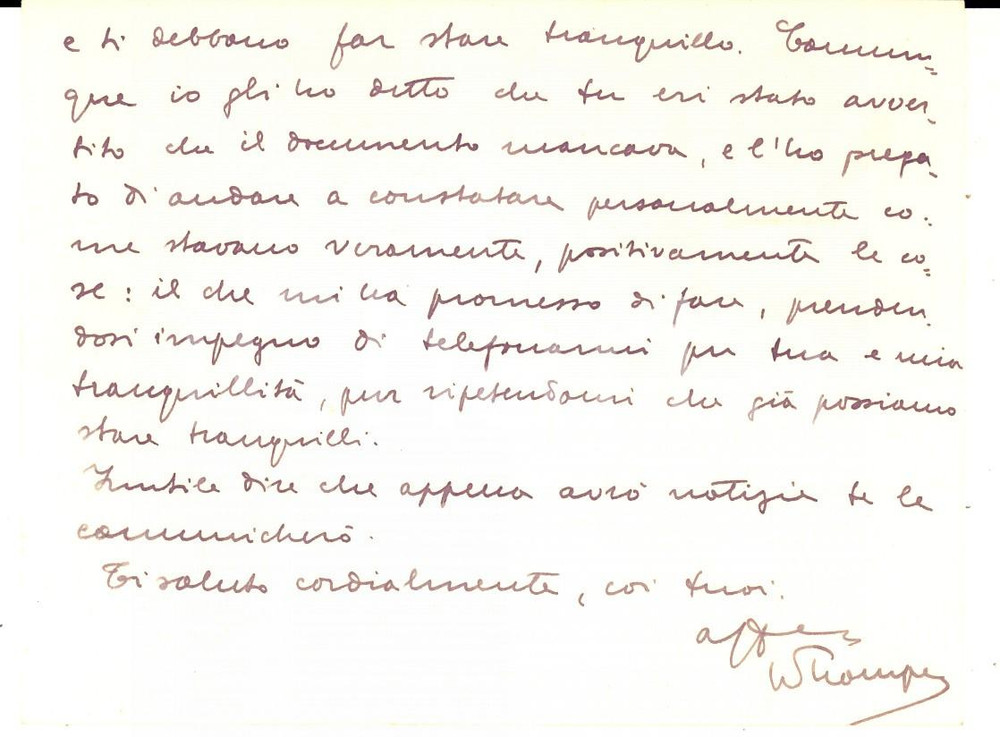 e ti debbono far stare tranquillo. Comun=
que io gli ho detto che tu eri stato avver=
tito che il documento mancava, e l'ho prega=
to di andare a constatare personalmente co=
me stavano veramente, positivamente le co=
se: il che mi ha promesso di fare, prenden=
dosi impegno di telefonarmi per tua e mia
tranquillità, pur ripetendomi che già possiamo
stare tranquilli.
Inutile dire che appena avrò notizie te le
comunicherò.
Ti saluto cordialmente, coi tuoi.